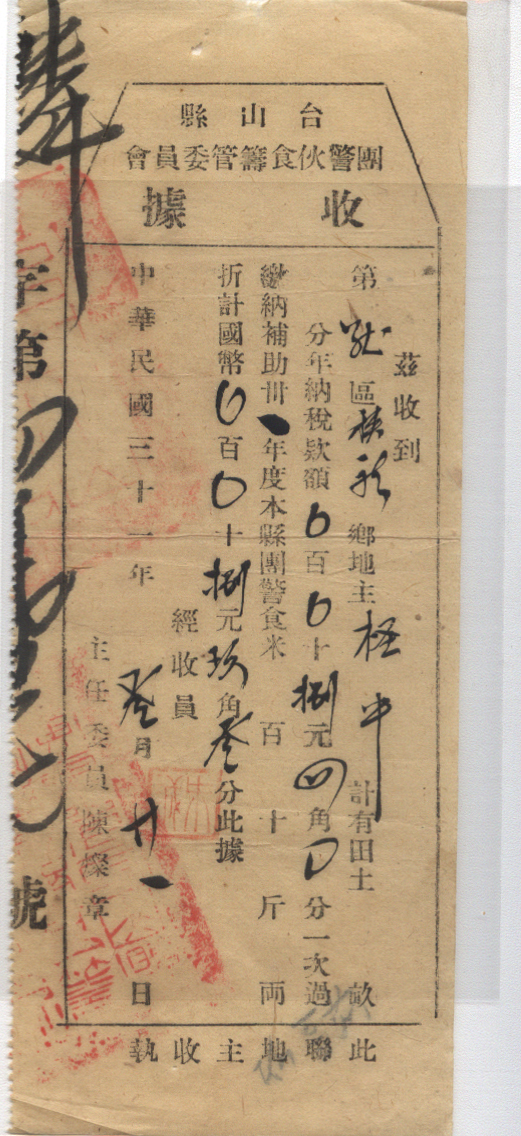 台山縣
團警伙食籌管委員會
收據
茲收到
第 區 鄉地主 計有田土 畝
分年納稅款額0百0十捌元四角0分一次過
繳納補助卅一年度本縣團警食米 百 十 斤 兩
折計國幣0百0十捌元玖角叁分此據
經收員
中華民國三十一年叁月廿一日
主任委員陳燦章
此聯地主收執
字第 號